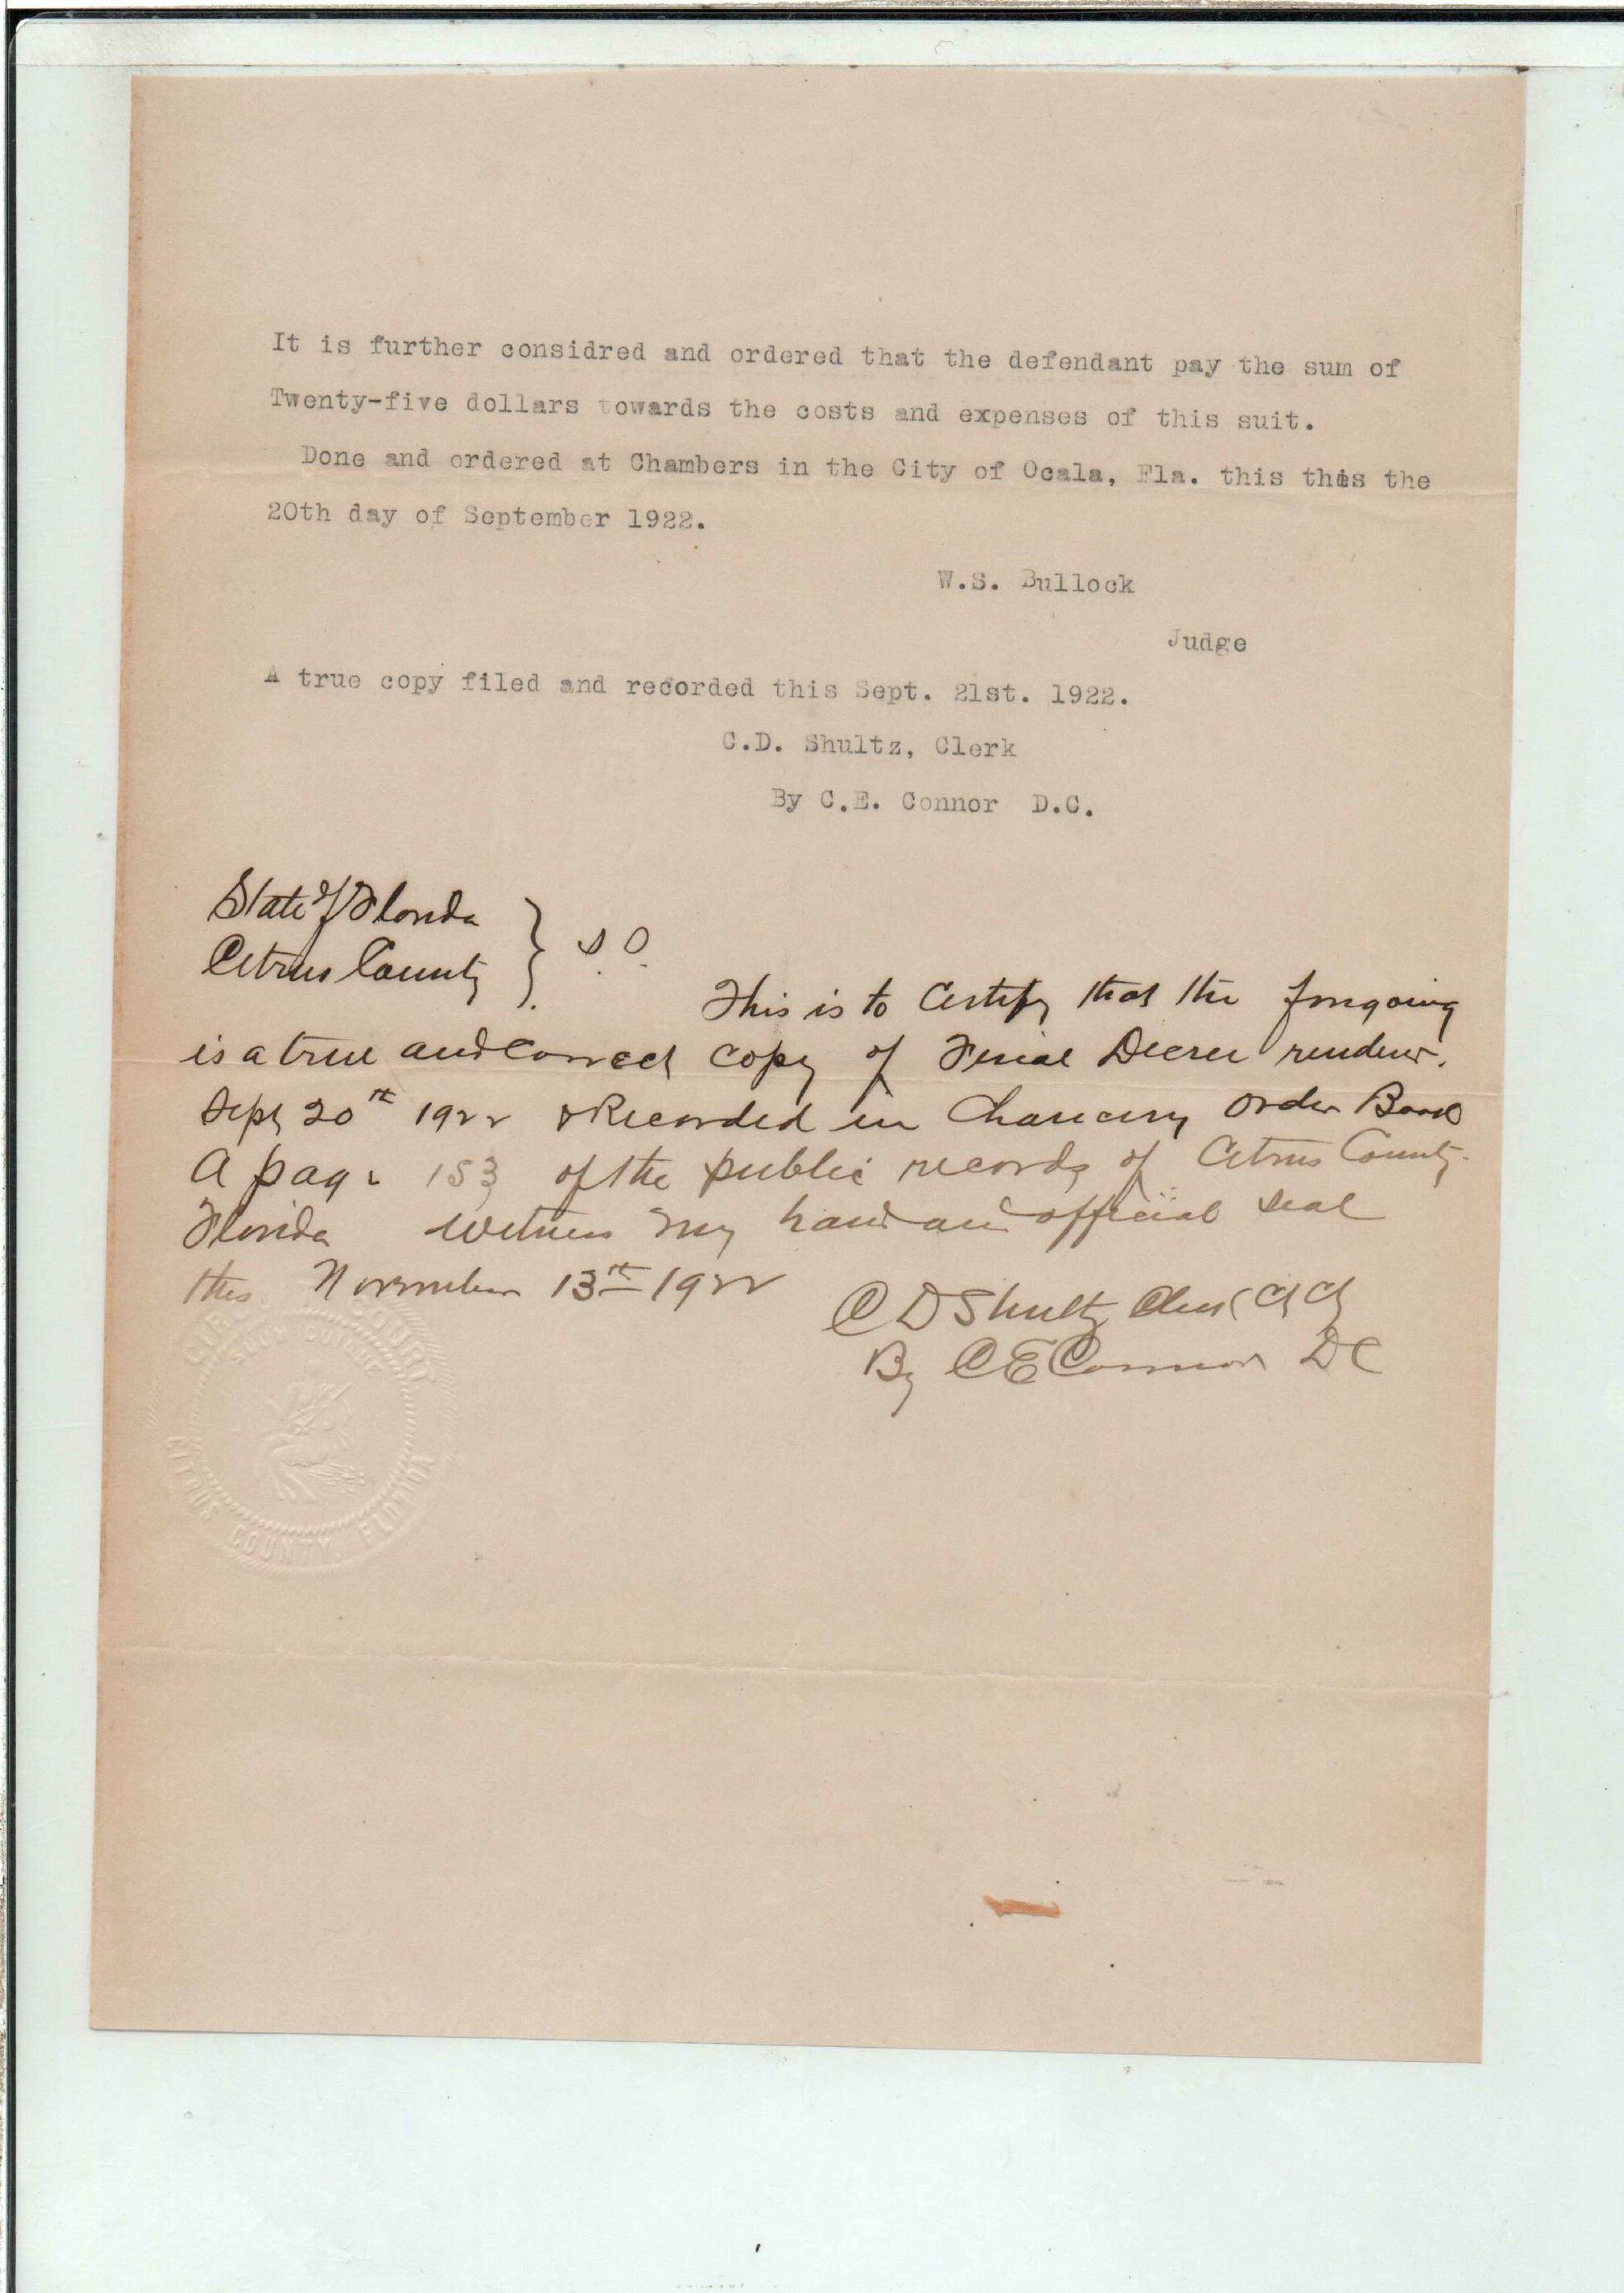 It is further considred and ordered that the defendant pay the sum of
Twenty-five dollars towards the costs and expenses of this suit.
Done and ordered at Chambers in the City of Ocala, Fla. this this the
20th day of September 1922.
W.S. Bullock
Judge
A true copy filed and recorded this Sept. 21st. 1922.
C.D. Shultz, Clerk
By C.E. Connor D.C.
State of Florida
Citrus County
This is to Certify that the foregoing
is a true and Correct Copy of Final Decree
Sept 20th 1922 & Recorded in Chancery Order Book
A page 153 of the public records of Citrus County
Florida Witness my hand and official seal
this November 13th 1922
C D Shultz Clerk
By C E Connor D C
CIRCUIT COURT
CITRUS COUNTY, FLORIDA